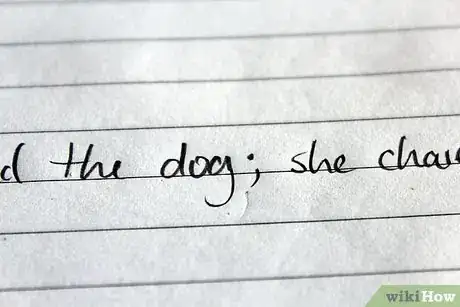 d the dog; she chas
wikiHow